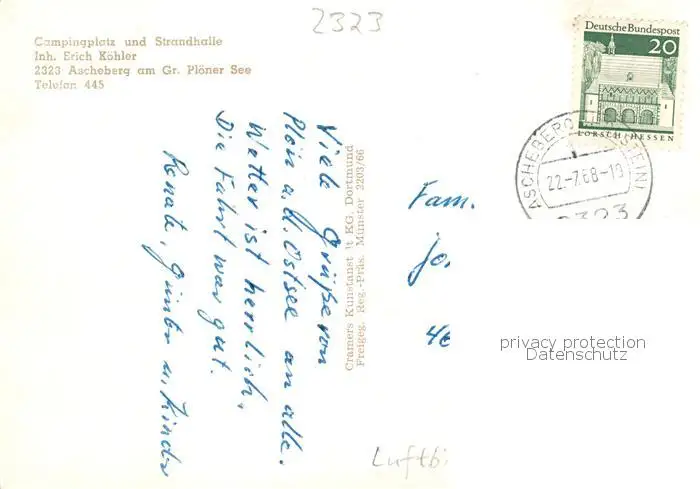 2323
Campingplatz und Strandhalle
Inh. Erich Köhler
2323 Ascheberg am Gr. Plöner See
Telefon 445
Deutsche Bundespost
20
LORSCH/HESSEN
ASCHEBERG (HOLSTEIN)
22.-7.68-19
2323
Viele Grüße von
Plön a. d. Ostsee an alle.
Wetter ist herrlich.
Die Fahrt war gut.
Renate, Günter u. Kinder
Cramers Kunstanstalt KG. Dortmund
Freigeg. Reg.-Präs. Münster 2203/66
Fam.
Jo.
46
privacy protection
Datenschutz
Luftbi